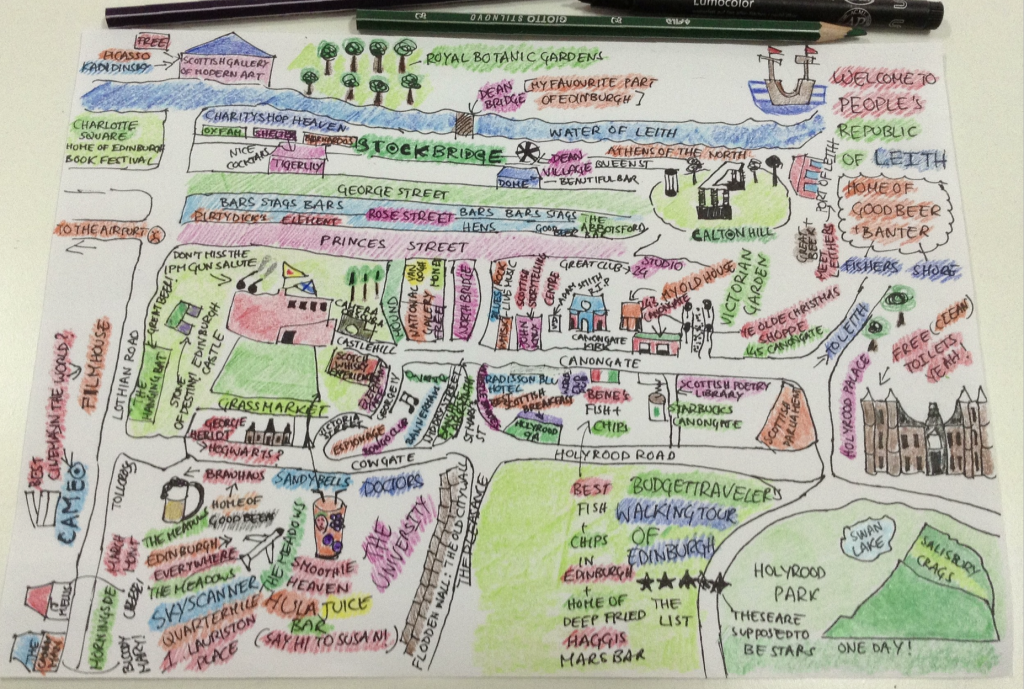 GIOTTO STILNOVO
Lumocolor
FREE
PICASSO
KANDINSKY
SCOTTISH GALLERY
OF MODERN ART
ROYAL BOTANIC GARDENS
DEAN
BRIDGE
MY FAVOURITE PART
OF EDINBURGH
WELCOME TO
PEOPLE'S
REPUBLIC
OF LEITH
CHARLOTTE
SQUARE
HOME OF EDINBURGH
BOOK FESTIVAL
CHARITYSHOP HEAVEN
OXFAM
SHELTER
BARNARDOS
WATER OF LEITH
NICE
COCKTAILS
TIGERLILY
STOCKBRIDGE
DEAN
VILLAGE
ATHENS OF THE NORTH
QUEEN ST
DOME
BEAUTIFUL BAR
PORT OF LEITH
HOME OF
GOOD BEER
+
BANTER
GREAT
BEER +
MEET
LEITHERS
GEORGE STREET
BARS STAGS BARS
DIRTY DICK'S
ELEMENT
ROSE STREET
BARS BARS STAGS
HENS
GOOD
BEER
THE
ABBOTSFORD
BAR
CALTON HILL
PRINCES STREET
TO THE AIRPORT
FISHERS SHORE
DON'T MISS THE
1PM GUN SALUTE
GREAT BEER!
THE
HANGING BAT
STONE
OF DESTINY!
EDINBURGH
CASTLE
CASTLEHILL
MOUND
NATIONAL
GALLERY
FREE
VAN
GOGH
MONET
NORTHBRIDGE
LIVE MUSIC
SCOTTISH
STORYTELLING
CENTRE
JOHN
KNOX
GREAT CLUB
STUDIO
24
ADAM SMITH
R.I.P
CANONGATE
KIRK
MY OLD HOUSE
VICTORIAN
GARDEN
YE OLDE CHRISTMAS
SHOPPE
145 CANONGATE
TO LEITH
FREE (CLEAN)
TOILETS
YEAH!
HOLYROOD PALACE
LOTHIAN ROAD
BEST
CINEMAS IN THE WORLD?
FILMHOUSE
CAMEO
SCOTCH
WHISKY
EXPERIENCE
CANONGATE
RADISSON BLU
HOTEL
SCOTTISH
BREAKFAST
HOLYROOD
9A
BENE'S
FISH +
CHIPS
SCOTTISH POETRY
LIBRARY
STARBUCKS
CANONGATE
SCOTTISH
PARLIAMENT
GRASSMARKET
GEORGE
HERIOT
HOGWARTS?
VICTORIA
ESPIONAGE
COWGATE
HOLYROOD ROAD
TOLLCROSS
BRAUHAUS
HOME OF
GOOD BEER
SANDY BELLS
DOCTORS
THE MEADOWS
EDINBURGH
EVERYWHERE
THE MEADOWS
THE MEADOWS
SKYSCANNER
QUARTERMILE
1. LAURISTON
PLACE
SMOOTHIE
HEAVEN
HULA JUICE
BAR
(SAY HI TO SUSAN!)
THE
UNIVERSITY
FLODDEN WALL: THE OLD CITY WALL
THE PLEASANCE
MORNINGSIDE
BLOODY
MARY!
BEST
FISH
+
CHIPS
IN
EDINBURGH
+
HOME OF
DEEP FRIED
HAGGIS
MARS BAR
BUDGETTRAVELER'S
WALKING TOUR
OF
EDINBURGH
THE
LIST
SWAN
LAKE
SALISBURY
CRAGS
HOLYROOD
PARK
THESE ARE
SUPPOSED TO
BE STARS ONE DAY!